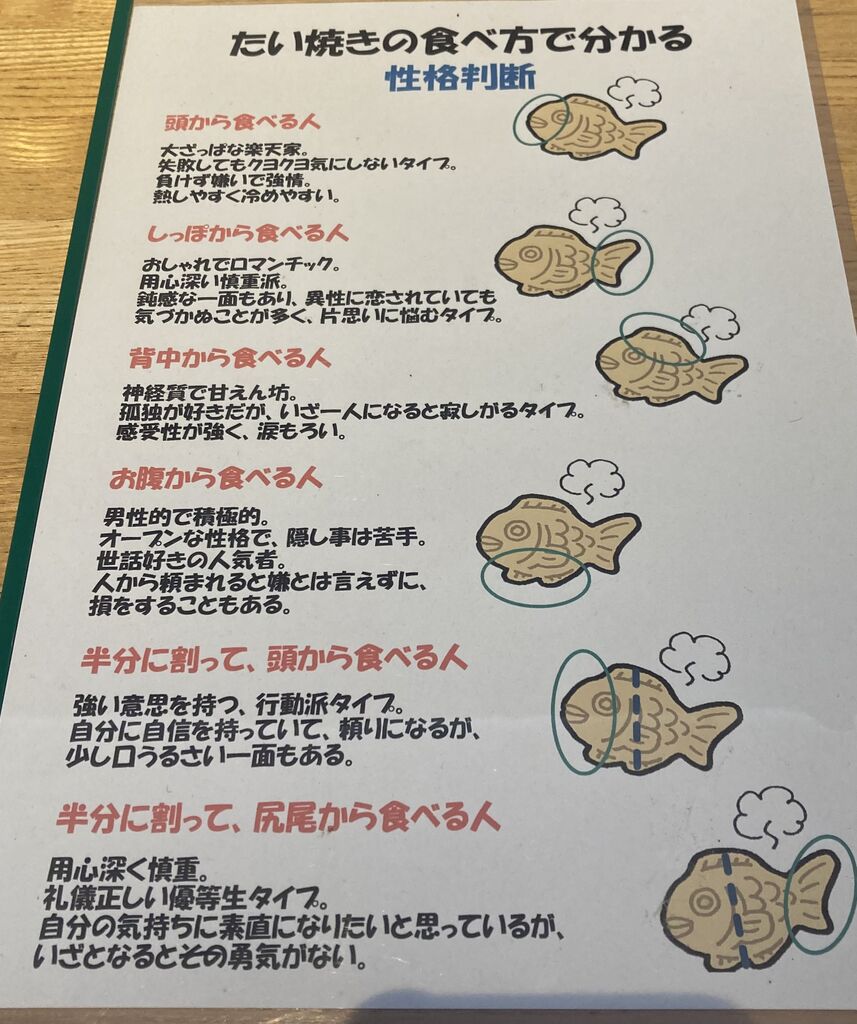 たい焼きの食べ方で分かる
性格判断
頭から食べる人
大ざっぱな楽天家。
失敗してもクヨクヨ気にしないタイプ。
負けず嫌いで強情。
熱しやすく冷めやすい。
しっぽから食べる人
おしゃれでロマンチック。
用心深い慎重派。
鈍感な一面もあり、異性に恋されていても
気づかぬことが多く、片思いに悩むタイプ。
背中から食べる人
神経質で甘えん坊。
孤独が好きだが、いざ一人になると寂しがるタイプ。
感受性が強く、涙もろい。
お腹から食べる人
男性的で積極的。
オープンな性格で、隠し事は苦手。
世話好きの人気者。
人から頼まれると嫌とは言えずに、
損をすることもある。
半分に割って、頭から食べる人
強い意思を持つ、行動派タイプ。
自分に自信を持っていて、頼りになるが、
少し口うるさい一面もある。
半分に割って、尻尾から食べる人
用心深く慎重。
礼儀正しい優等生タイプ。
自分の気持ちに素直になりたいと思っているが、
いざとなるとその勇気がない。